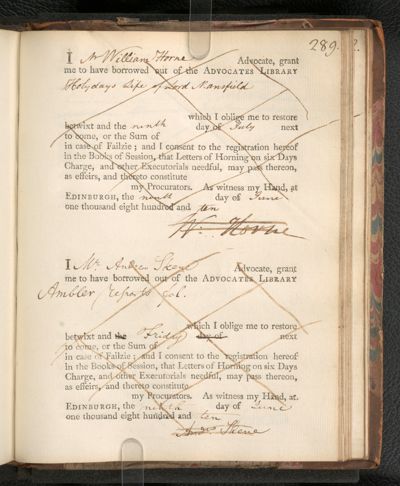 289.
I Mr William Horne Advocate, grant
me to have borrowed out of the ADVOCATES LIBRARY
Holydays Life of Lord Mansfield
which I oblige me to restore
betwixt and the ninth day of July next
to come, or the Sum of
in case of Failzie; and I consent to the registration hereof
in the Books of Session, that Letters of Horning on six Days
Charge, and other Executorials needful, may pass thereon,
as effeirs, and thereto constitute
my Procurators. As witness my Hand, at
EDINBURGH, the ninth day of June
one thousand eight hundred and ten
Wm Horne
I Mr. Andrew Skene Advocate, grant
me to have borrowed out of the ADVOCATES LIBRARY
Ambler Reports
which I oblige me to restore
betwixt and the Friday day of next
to come, or the Sum of
in case of Failzie; and I consent to the registration hereof
in the Books of Session, that Letters of Horning on six Days
Charge, and other Executorials needful, may pass thereon,
as effeirs, and thereto constitute
my Procurators. As witness my Hand, at
EDINBURGH, the ninth day of June
one thousand eight hundred and ten
Skene